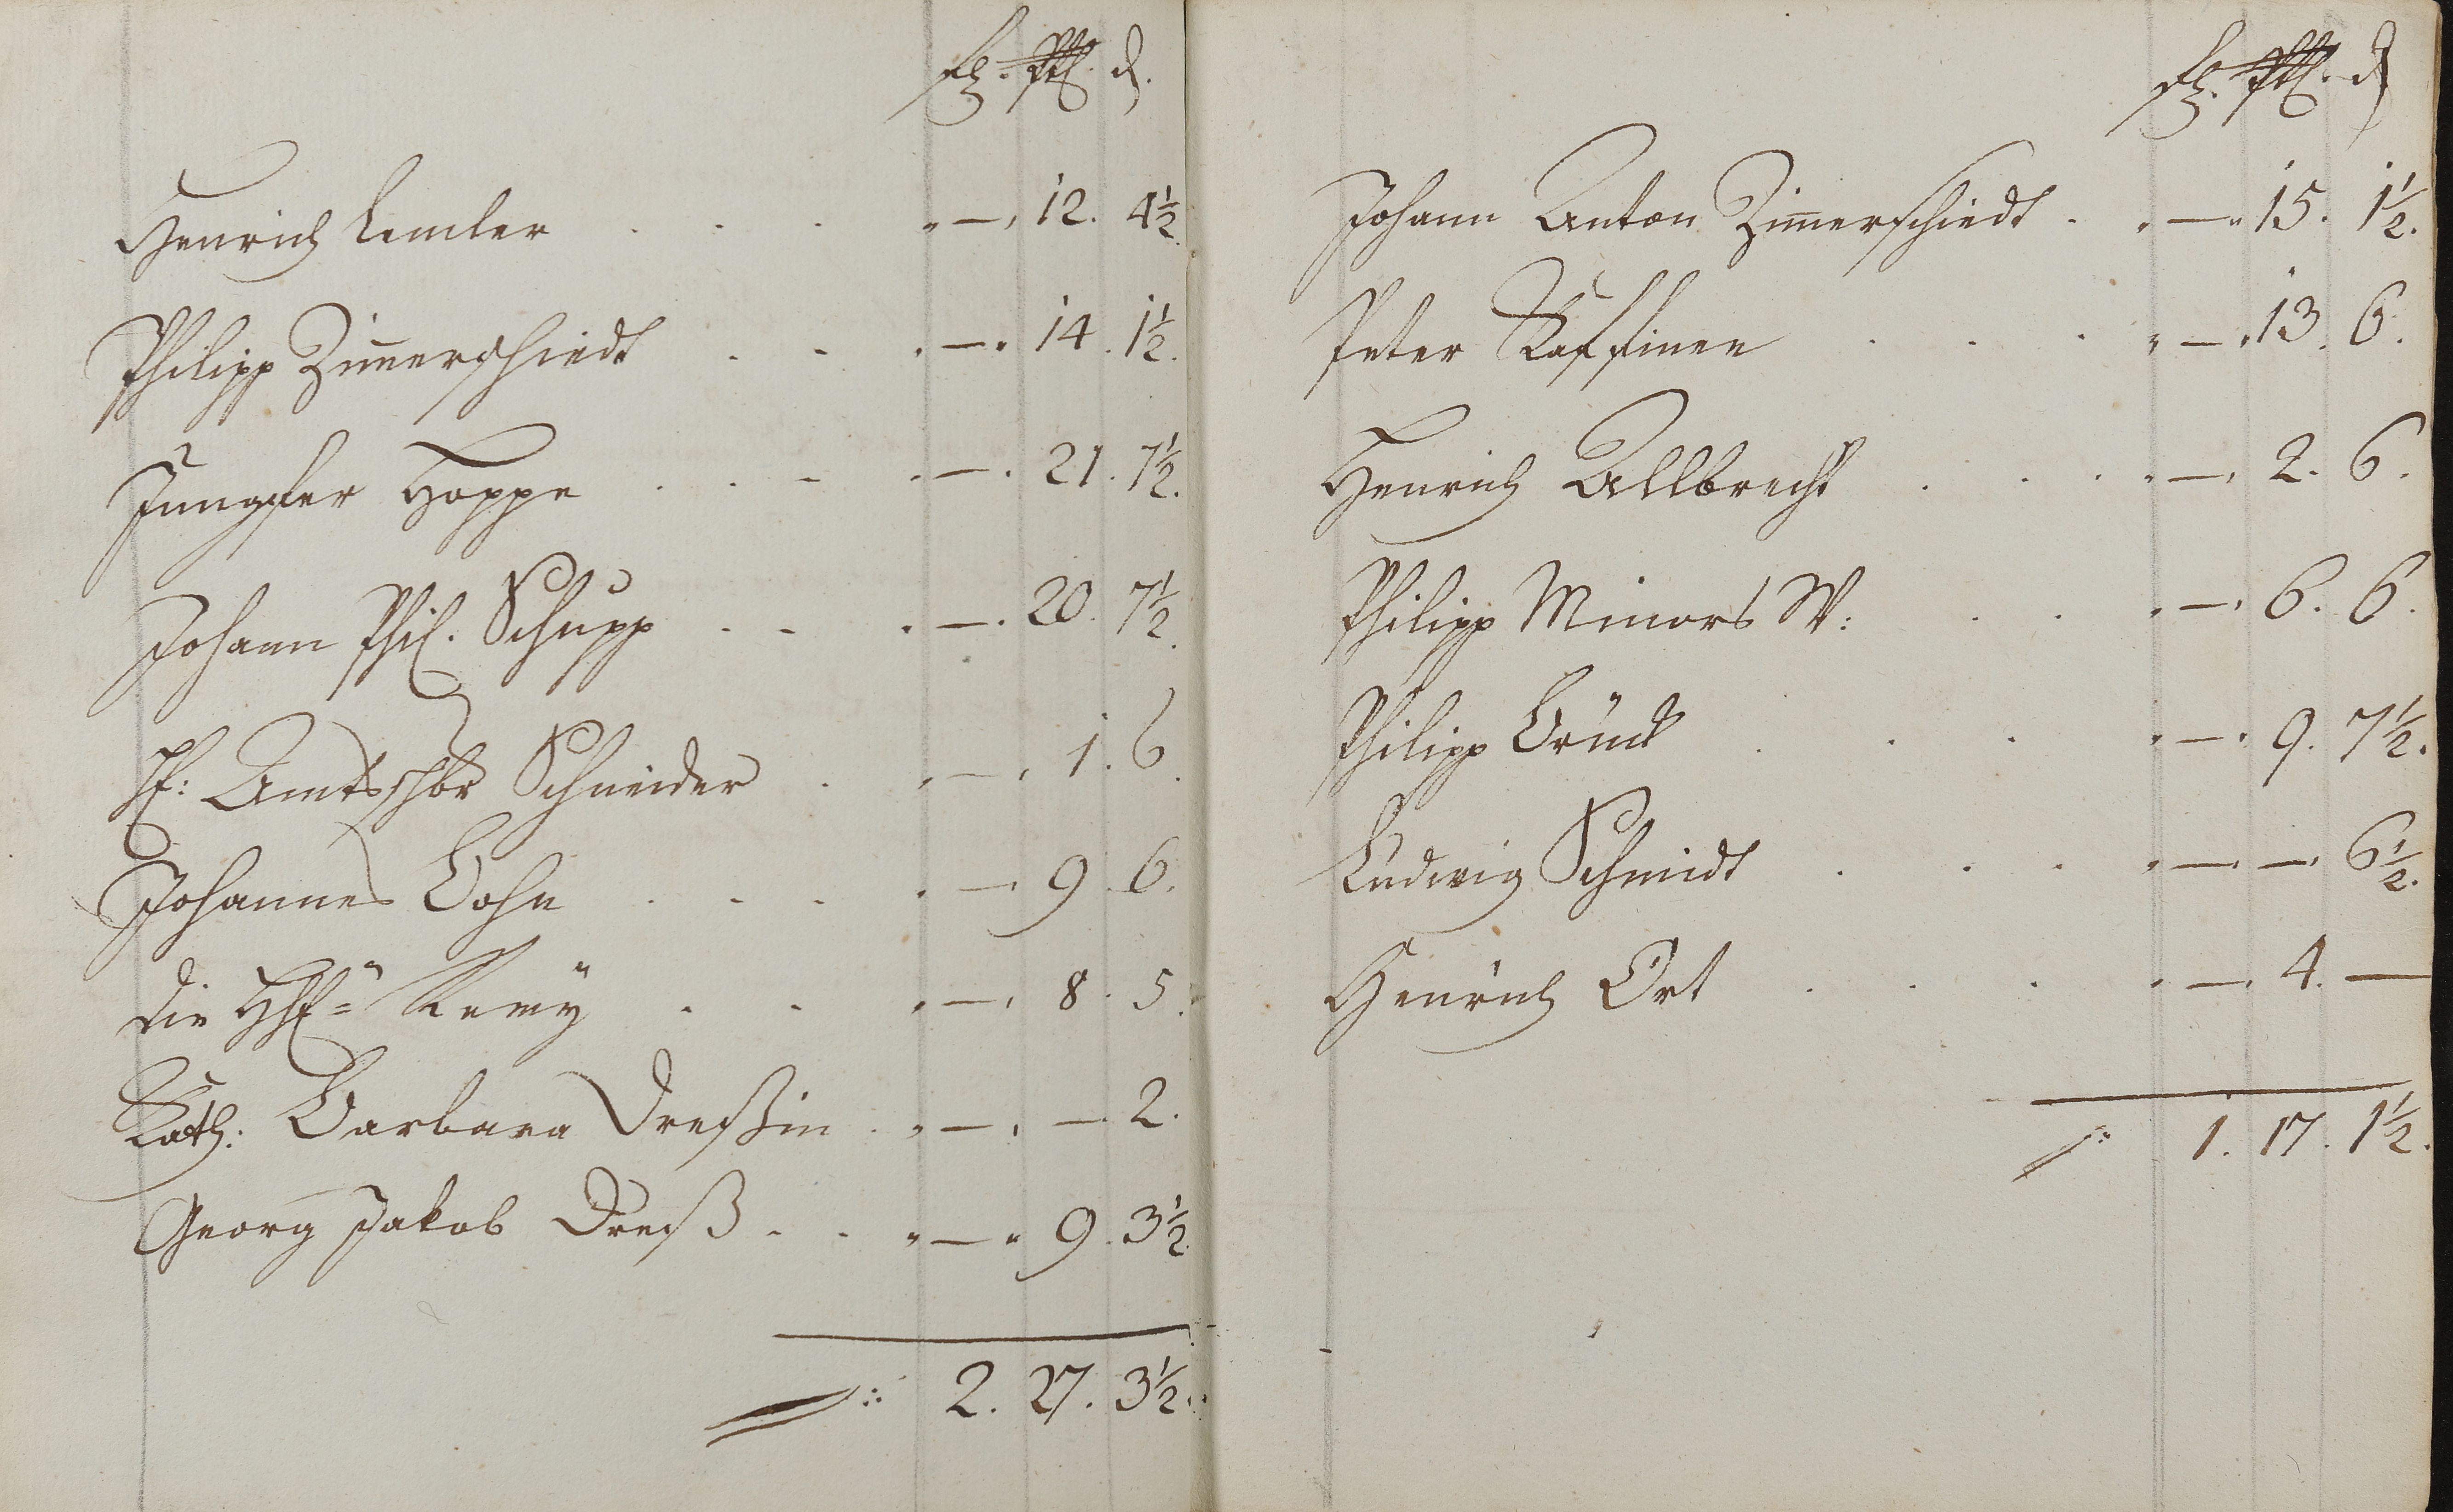 fl. Alb. d.
Henrich Lemler . . . . — . 12. 4½.
Philipp Zimerschiedt . . . — . 14. 1½.
Jungfer Hoppe . . - . — . 21. 7½.
Johann Phil. Schupp . - . — . 20. 7½.
H: Amtsschbr Schneider . . — . 1. 6.
Johannes Bohn . . . . — . 9. 6.
die HH = Remÿ . . . — . 8. 5.
Kath: Barbara Dreßin . . — . — 2.
Georg Jakob Dreß . . . — . 9. 3½.
2. 27. 3½.
fl. Alb. d
Johann Anton Zimerschiedt . . — . 15. 1½.
Peter Kaffinee . . . . — . 13. 6.
Henrich Allbrecht . . . . — . 2. 6.
Philipp Minors W: . . . — . 6. 6.
Philipp Brück . . . . — . 9. 7½.
Ludwig Schmidt . . . . — . — . 6½.
Henrich Ort . . . . — . 4. —
1. 17. 1½.